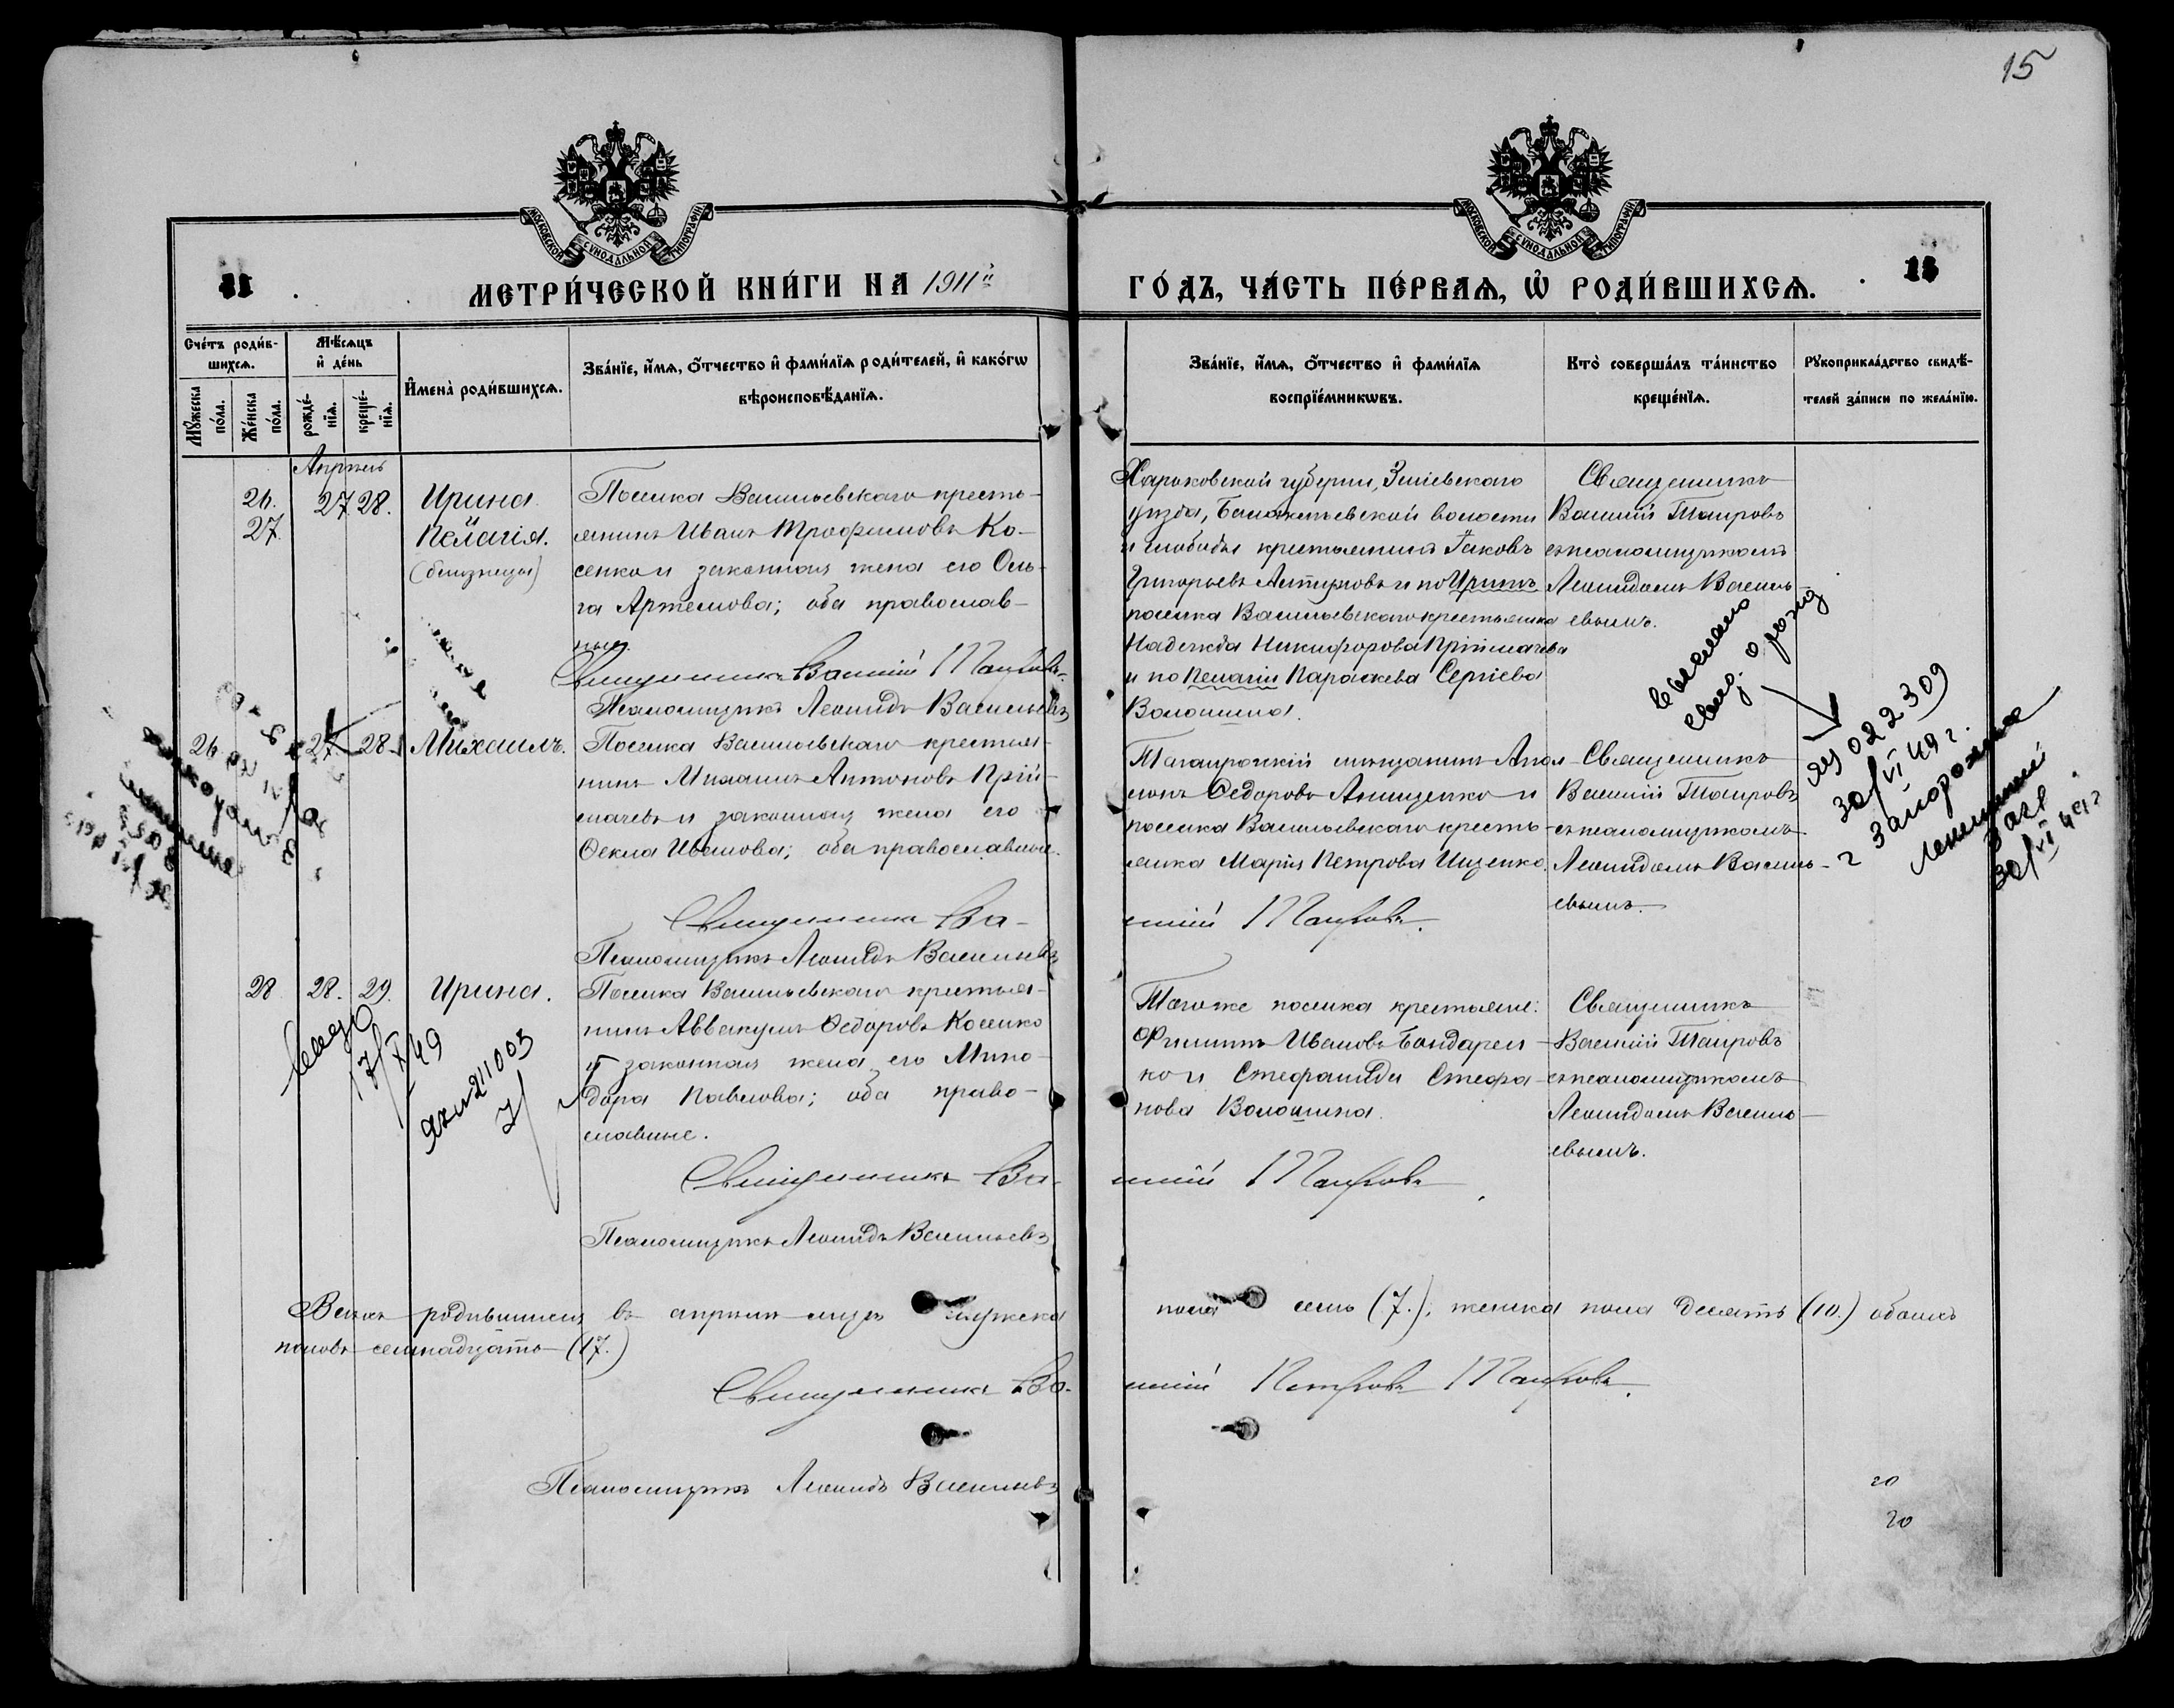 15
МОСКОВСКОЙ СУНОДАЛЬНОЙ ТИПОГРАФІИ
МОСКОВСКОЙ СУНОДАЛЬНОЙ ТИПОГРАФІИ
МЕТРИ́ЧЕСКОЙ КНИ́ГИ НА 1911й
ГО́ДЪ, ЧА́СТЬ ПЕ́РВАѦ, Ѡ҆ РОДИ́ВШИХСѦ.
Сче́тъ роди́в-
шихсѧ.
Мꙋ́жеска по́ла.
Же́нска по́ла.
Мѣ́сѧцъ
и҆ де́нь
рожде́-
нїѧ.
креще́-
нїѧ.
И҆мена̀ роди́вшихсѧ.
Зва́нїе, и҆́мѧ, ѻ҆́тчество и҆ фами́лїѧ роди́телей, и҆ како́гѡ
вѣроисповѣ́данїѧ.
Зва́нїе, и҆́мѧ, ѻ҆́тчество и҆ фами́лїѧ
воспрїе́мникѡвъ.
Кто̀ соверша́лъ та́инство
креще́нїѧ.
Рꙋкоприкла́дство свидѣ́-
телей за́писи по жела́нїю.
Апрѣль
26. 27 28. Ирина
27. Пелагія.
(близнецы)
Поселка Васильевскаго кресть-
янинъ Иванъ Трофимовъ Ко-
сенко и законная жена его Оль-
га Артемова; оба православ-
ные.
Священникъ Василій Таировъ
Псаломщикъ Леонидъ Васильевъ
Харьковской губерніи, Зміевскаго
уѣзда, волости
и слободы крестьянинъ Іаковъ
Григорьевъ и по Иринѣ
поселка Васильевскаго крестьянка
Надежда Никифорова Приймачева
и по Пелагіи Параскева Сергіева
Волошина.
Священникъ
Василій Таировъ
съ псаломщикомъ
Леонидомъ Василь-
евымъ.
26 27 28 Михаилъ.
Поселка Васильевскаго крестья-
нинъ Антоновъ Прій-
мачевъ и законная жена его
Ѳекла Иванова; оба православные.
Священникъ Ва-
силій Таировъ.
Псаломщикъ Леонидъ Васильевъ
Таганрогскій мѣщанинъ
Ѳедоровъ Анищенко и
поселка Васильевскаго кресть-
янка Марія Петрова Ищенко.
Священникъ
Василій Таировъ
съ псаломщикомъ
Леонидомъ Василь-
евымъ.
выслано
свид. о рожд
022309
30/VI 49 г.
г Запорожье
Ленинский
Загс
30/VI 49 г
28 28. 29. Ирина.
17/X 49
211003
Поселка Васильевскаго крестья-
нинъ Аввакумъ Ѳедоровъ Косенко
и законная жена его Мино-
дора Павлова; оба право-
славные.
Священникъ Ва-
силій Таировъ
Псаломщикъ Леонидъ Васильевъ
Того же поселка крестьяне:
Филиппъ Ивановъ Бондарен-
ко и Стефанида Стефа-
нова Волошина.
Священникъ
Василій Таировъ
съ псаломщикомъ
Леонидомъ Василь-
евымъ.
Всѣхъ родившихся въ апрѣлѣ мужска пола семь (7.), женска пола десять (10.) обоихъ
половъ семнадцать (17.)
Священникъ Ва-
силій Петровъ Таировъ.
Псаломщикъ Леонидъ Васильевъ
20
20